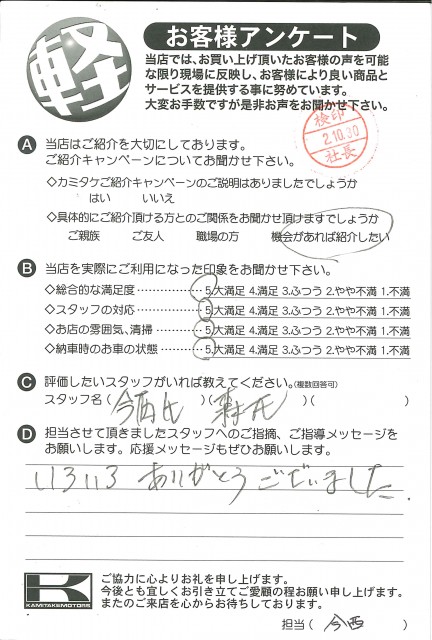 軽
お客様アンケート
当店では、お買い上げ頂いたお客様の声を可能
な限り現場に反映し、お客様により良い商品と
サービスを提供する事に努めています。
大変お手数ですが是非お声をお聞かせ下さい。
検印
2.10.30
社長
A 当店はご紹介を大切にしております。
ご紹介キャンペーンについてお聞かせ下さい。
◇カミタケご紹介キャンペーンのご説明はありましたでしょうか
はい いいえ
◇具体的にご紹介頂ける方とのご関係をお聞かせ頂けますでしょうか
ご親族 ご友人 職場の方 機会があれば紹介したい
B 当店を実際にご利用になった印象をお聞かせ下さい。
◇総合的な満足度……………5.大満足 4.満足 3.ふつう 2.やや不満 1.不満
◇スタッフの対応……………5.大満足 4.満足 3.ふつう 2.やや不満 1.不満
◇お店の雰囲気、清掃………5.大満足 4.満足 3.ふつう 2.やや不満 1.不満
◇納車時のお車の状態………5.大満足 4.満足 3.ふつう 2.やや不満 1.不満
C 評価したいスタッフがいれば教えてください。(複数回答可)
スタッフ名(今西氏)(森氏)( )
D 担当させて頂きましたスタッフへのご指摘、ご指導メッセージを
お願いします。応援メッセージもぜひお願いします。
いろいろ ありがとうございました.
K
KAMITAKE MOTORS
ご協力に心よりお礼を申し上げます。
今後とも宜しくお引き立てご愛顧の程お願い申し上げます。
またのご来店を心からお待ちしております。
担当( 今西 )